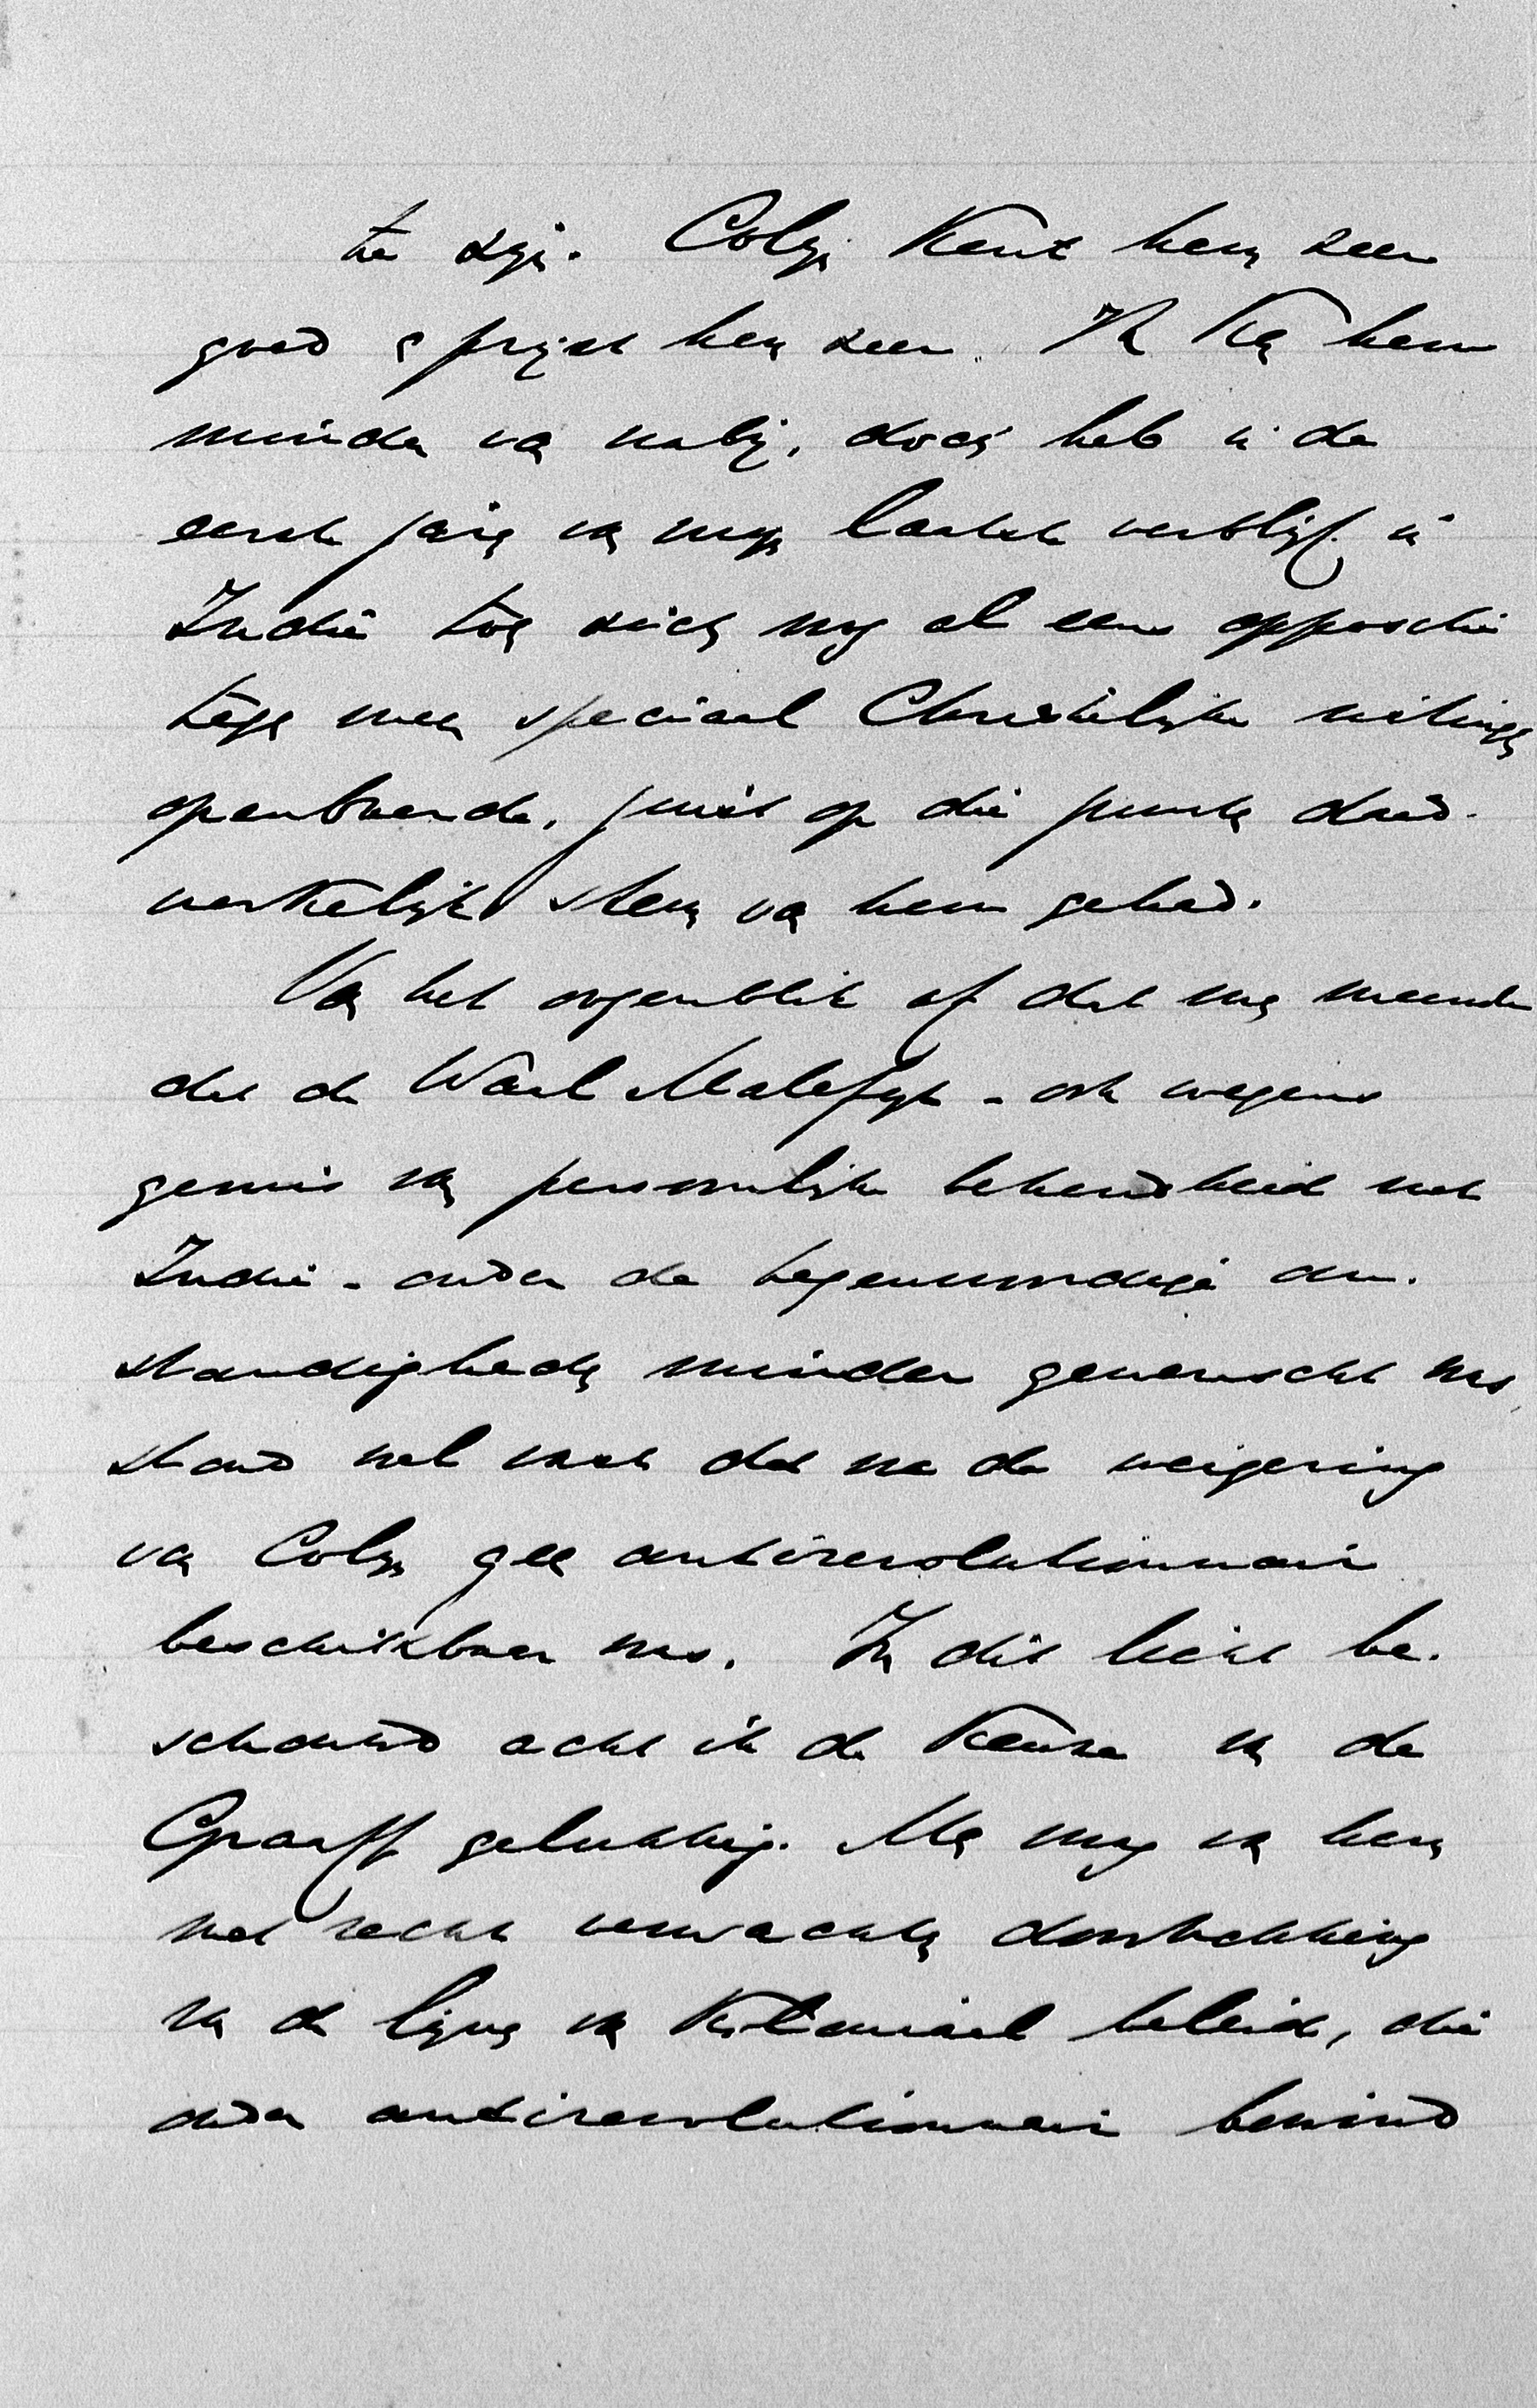 te zijn. Colijn kent hem zeer
goed en prijst hem zeer. Ik ken hem
minder van nabij, doch heb in de
eerste jaren van mijn laatste verblijf in
Indië toen zich nog al eens oppositie
tegen meer speciaal Christelijke uitingen
openbaarde, juist op die punten daad-
werkelijke steun van hem gehad.
Van het oogenblik af dat men meende
dat de Waal Malefijt - ook wegens
gemis van persoonlijke bekendheid met
Indië - onder de tegenwoordige om-
standigheden minder gewenscht was,
stond wel vast dat na de weigering
van Colijn geen antirevolutionnair
beschikbaar was. In dit licht be-
schouwd acht ik de keuze van de
Graeff gelukkig. Men mag van hem
met recht verwachten doortrekking
van de lijnen van koloniaal beleid, die
onder antirevolutionnair bewind